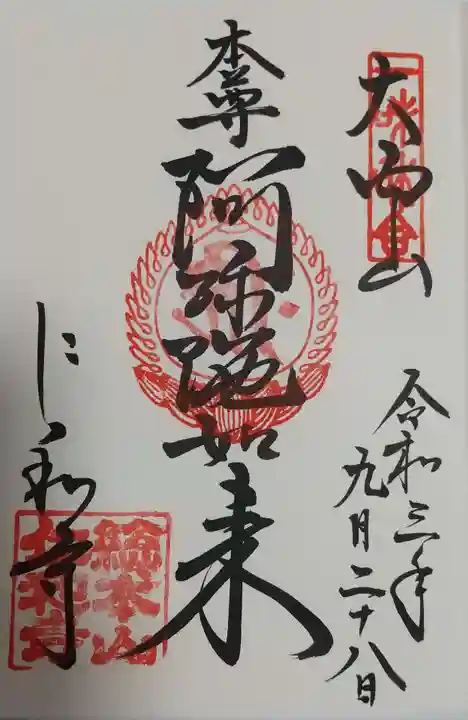 大内山
令和三年
九月二十八日
本尊
阿弥陀如来
仁和寺
総本山
仁和寺